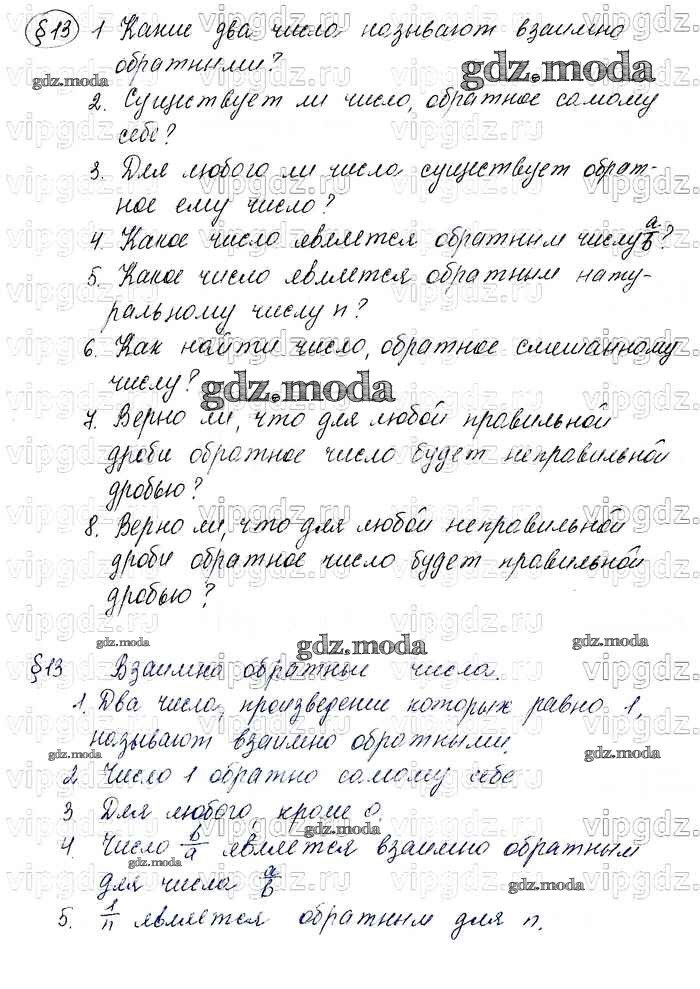 §13 1 Какие два числа называют взаимно
обратными?
gdz.moda
gdz.moda
2. Существует ли число, обратное самому
себе?
3. Для любого ли числа существует обрат-
ное ему число?
4. Какое число является обратным числу a/b?
5. Какое число является обратным нату-
ральному числу n?
6. Как найти число, обратное смешанному
числу?
gdz.moda
7. Верно ли, что для любой правильной
дроби обратное число будет неправильной
дробью?
8. Верно ли, что для любой неправильной
дроби обратное число будет правильной
дробью?
gdz.moda
gdz.moda
gdz.moda
§13 Взаимна обратные числа.
1. Два числа, произведении которых равно 1,
называют взаимно обратными.
gdz.moda
gdz.moda
2. Число 1 обратно самому себе.
3 Для любого, кроме 0.
gdz.moda
4. Число b/a является взаимно обратным
gdz.moda
для числа a/b
gdz.moda
5. 1/n является обратным для n.